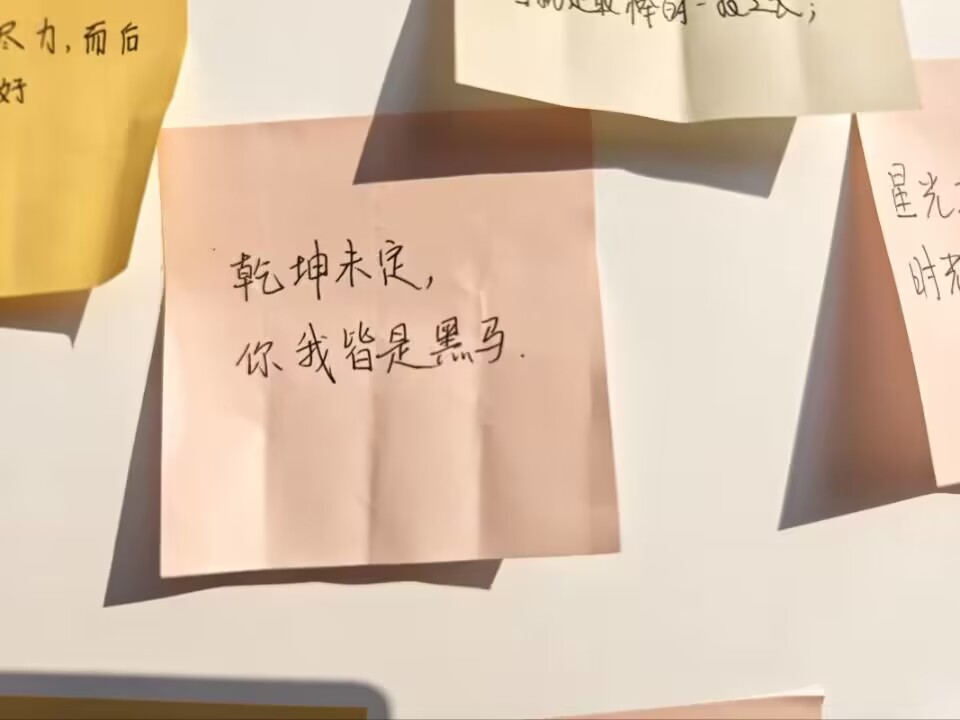 尽力,而后
好
最棒的一
乾坤未定,
你我皆是黑马.
星光
时